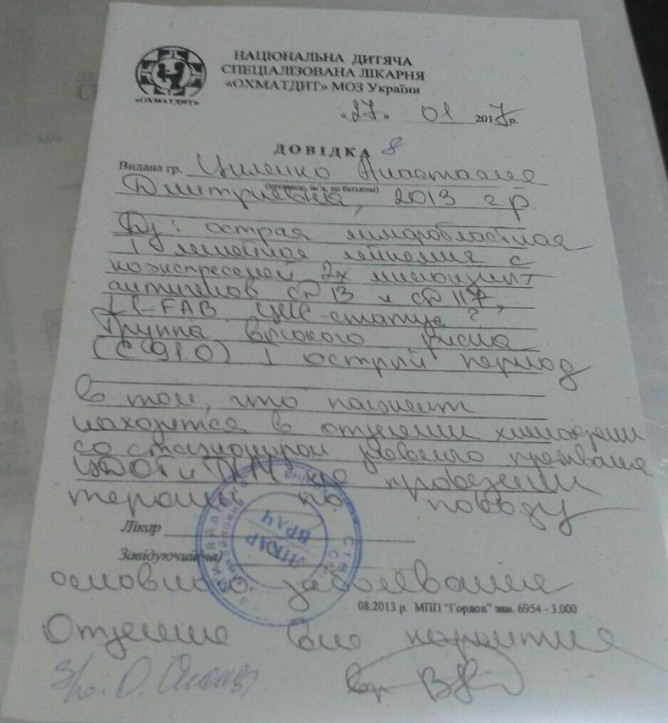 НАЦІОНАЛЬНА ДИТЯЧА
СПЕЦІАЛІЗОВАНА ЛІКАРНЯ
«ОХМАТДИТ» МОЗ України
«ОХМАТДИТ»
«27» 01 2017р.
ДОВІДКА 8
Видана гр. Циленко Анастасия
(прізвище, ім'я, по батькові)
Дмитриевна, 2013 г.р
Дз: острая лимфобластная
лейкемия с
коэкспрессией 2х миелоидн
антигенов CD 13 и CD 117,
L1-FAB ЦНС-статус ?
Группа высокого риска
(С 91.0) 1 острый период
в том, что пациент
находится в отделении химиотерапии
со стационаром дневного пребывания
по проведении
терапии по поводу
Лікар
Завідуючий(на)
ЛІКАР
ВРАЧ
основного заболевания
08.2013 р. МПП "Гордон" зам. 6954 - 3.000
Отделение вне карантина